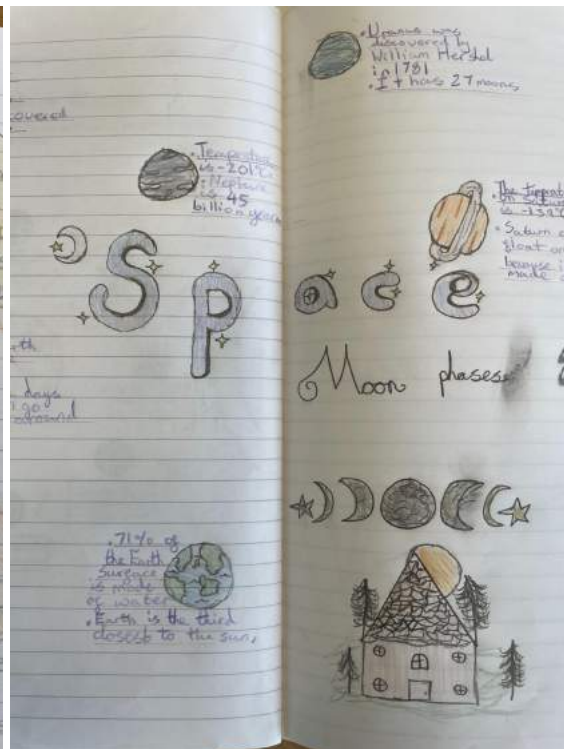 covered
• Temperature
is -201°C
• Neptune
is 45
billion years
Space
th
days
go
around
• 71% of
the Earth
Surface
is made
of water
• Earth is the third
closest to the sun,
• Uranus was
discovered by
William Hershel
in 1781
• It has 27 moons
• The temperat
on Saturn
is -139°C
• Saturn c
float on
because i
made o
Moon phases